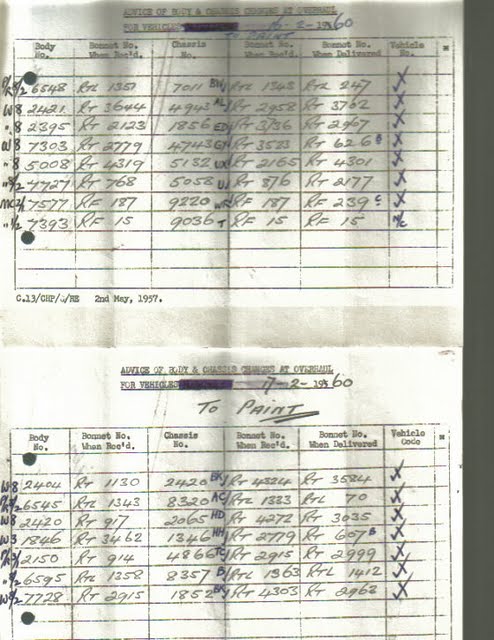 ADVICE OF BODY & CHASSIS CHANGES AT OVERHAUL
FOR VEHICLES 16-2-1960
TO PAINT
Body No. Bonnet No. When Rec'd. Chassis No. Bonnet No. When Rec'd. Bonnet No. When Delivered Vehicle Code
6548 RTL 1351 7011 RTL 1345 RTL 247
W8 2421 RT 3644 4943 AL RT 2958 RT 3762
"8 2395 RT 2123 1856 RT 3736 RT 2967
W8 7303 RT 2779 4743 RT 3523 RT 626 B
"8 5008 RT 4319 5132 UX RT 2165 RT 4301
7727 RT 768 5058 RT 876 RT 2177
7577 RF 187 9220 RF 187 RF 239 C
7393 RF 15 9036 T RF 15 RF 15 N/C
C.13/CHP/ /RE 2nd May, 1957.
ADVICE OF BODY & CHASSIS CHANGES AT OVERHAUL
FOR VEHICLES 17-2-1960
TO PAINT
Body No. Bonnet No. When Rec'd. Chassis No. Bonnet No. When Rec'd. Bonnet No. When Delivered Vehicle Code
W8 2404 RT 1130 2420 BX RT 4324 RT 3584
6545 RTL 1343 8320 AC RTL 1333 RTL 70
W8 2420 RT 917 2065 HD RT 4272 RT 3035
W3 1846 RT 3462 1346 HH RT 2779 RT 607 B
2150 RT 914 4866 TC RT 2915 RT 2999
6595 RTL 1358 8357 B RTL 1363 RTL 1412
7728 RT 2915 1852 RT 4303 RT 2968